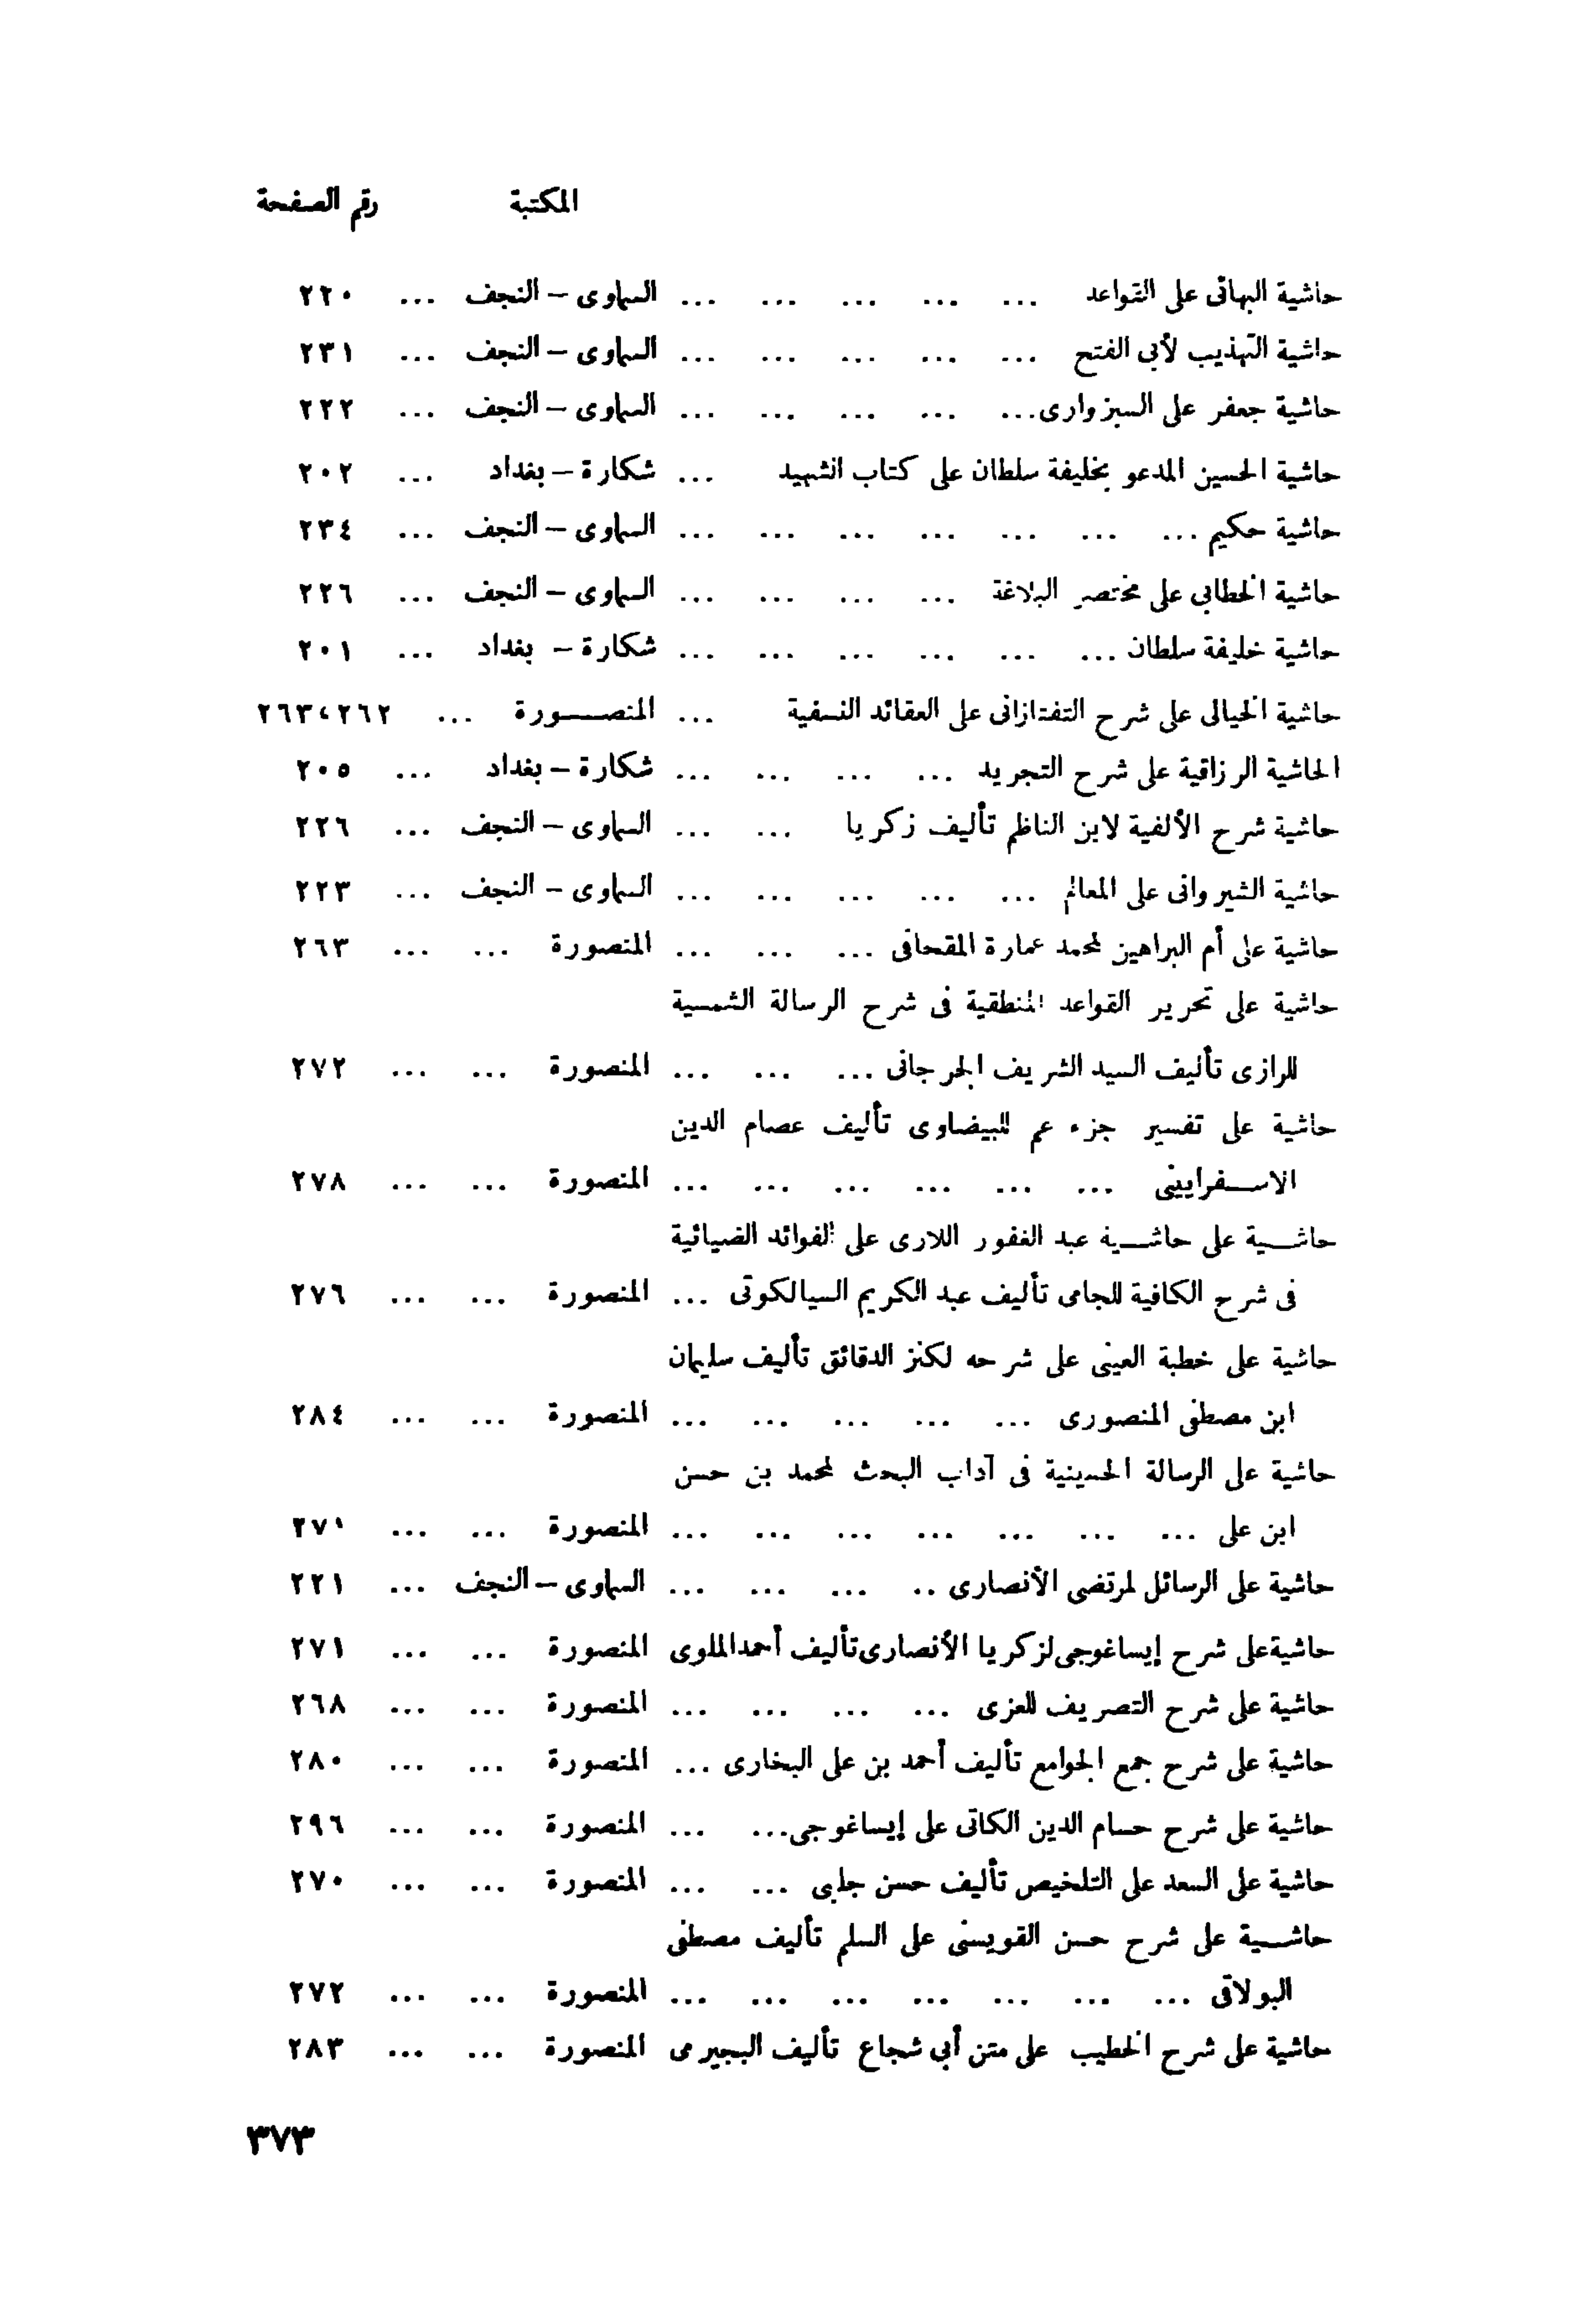 المكتبة رقم الصفحة
حاشية البهائى على القواعد ... ... ... ... ... السماوى – النجف ... ٢٢٠
حاشية التهذيب لأبى الفتح ... ... ... ... ... السماوى – النجف ... ٢٣١
حاشية جعفر على السبزوارى... ... ... ... ... السماوى – النجف ... ٢٢٢
حاشية الحسين المدعو بخليفة سلطان على كتاب الشهيد ... شكارة – بغداد ... ٢٠٢
حاشية حكيم ... ... ... ... ... ... ... السماوى – النجف ... ٢٣٤
حاشية الخطابى على مختصر البلاغة ... ... ... ... السماوى – النجف ... ٢٢٦
حاشية خليفة سلطان ... ... ... ... ... ... شكارة – بغداد ... ٢٠١
حاشية الخيالى على شرح التفتازانى على العقائد النسفية ... المنصورة ... ٢٦٢ ، ٢٦٣
الحاشية الرزاقية على شرح التجريد ... ... ... ... شكارة – بغداد ... ٢٠٥
حاشية شرح الألفية لابن الناظم تأليف زكريا ... ... السماوى – النجف ... ٢٢٦
حاشية الشيروانى على المعالم ... ... ... ... ... السماوى – النجف ... ٢٢٣
حاشية على أم البراهين لمحمد عمارة المقحافى ... ... ... المنصورة ... ... ٢٦٣
حاشية على تحرير القواعد المنطقية فى شرح الرسالة الشمسية
للرازى تأليف السيد الشريف الجرجانى ... ... ... المنصورة ... ... ٢٧٢
حاشية على تفسير جزء عم للبيضاوى تأليف عصام الدين
الاسفرايينى ... ... ... ... ... ... المنصورة ... ... ٢٧٨
حاشية على حاشية عبد الغفور اللارى على الفوائد الضيائية
فى شرح الكافية للجامى تأليف عبد الكريم السيالكوتى ... المنصورة ... ... ٢٧٦
حاشية على خطبة العينى على شرحه لكنز الدقائق تأليف سليمان
ابن مصطفى المنصورى ... ... ... ... ... المنصورة ... ... ٢٨٤
حاشية على الرسالة الحسينية فى آداب البحث لمحمد بن حسن
ابن على ... ... ... ... ... ... ... المنصورة ... ... ٢٧١
حاشية على الرسائل لمرتضى الأنصارى .. ... ... ... السماوى – النجف ... ٢٢١
حاشية على شرح إيساغوجى لزكريا الأنصارى تأليف أحمد الملوى المنصورة ... ... ٢٧١
حاشية على شرح التصريف للعزى ... ... ... ... المنصورة ... ... ٢٦٨
حاشية على شرح جمع الجوامع تأليف أحمد بن على البخارى ... المنصورة ... ... ٢٨٠
حاشية على شرح حسام الدين الكاتى على إيساغوجى... ... المنصورة ... ... ٢٩٦
حاشية على السعد على التلخيص تأليف حسن جلبى ... ... المنصورة ... ... ٢٧٠
حاشية على شرح حسن القويسنى على السلم تأليف مصطفى
البولاقى ... ... ... ... ... ... ... المنصورة ... ... ٢٧٢
حاشية على شرح الخطيب على متن أبى شجاع تأليف البجيرمى المنصورة ... ... ٢٨٣
٣٧٣